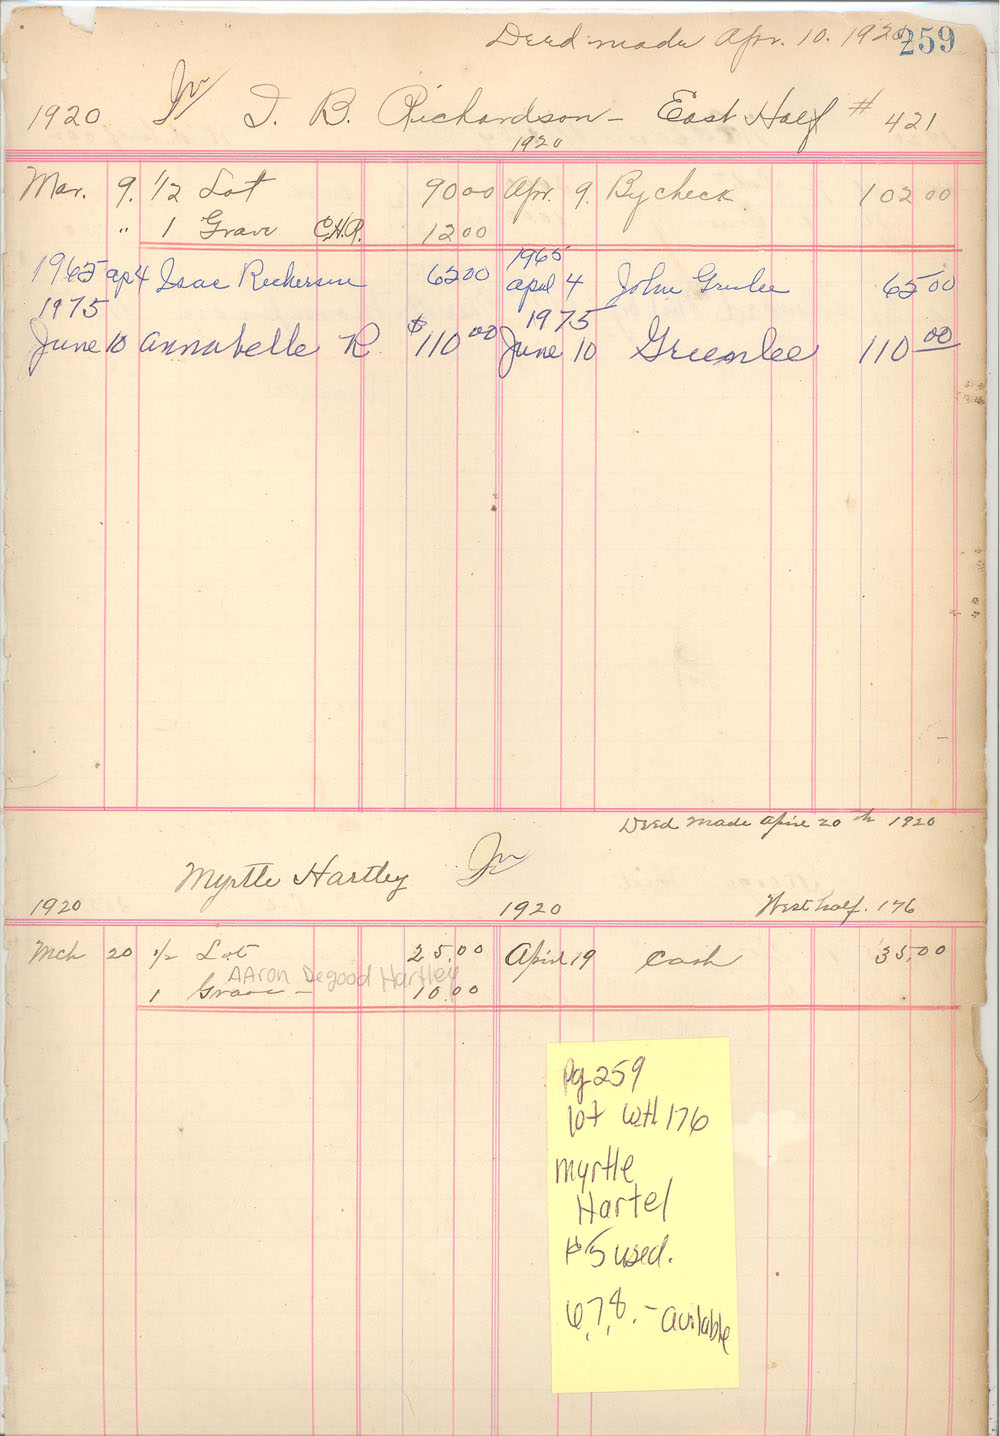 Deed made Apr. 10. 1920
259
1920 J. B. Richardson - East Half # 421
1920
Mar. 9. 1/2 Lot 90 00 Apr. 9. By check 102 00
" 1 Grave C.H.R. 12 00
1965 1965
ap 4 Isac 65 00 april 4 John 65 00
1975 1975
June 10 Annabelle R. $110 00 June 10 Greenlee 110 00
Deed made April 20th 1920
Myrtle Hartley
1920 1920 West half. 176
Mch 20 1/2 Lot 25.00 April 19 Cash 35.00
AAron Degood Hartley
1 Grave - 10.00
Pg 259
lot 176
Myrtle
Hartel
#5 used.
6, 7, 8. - available